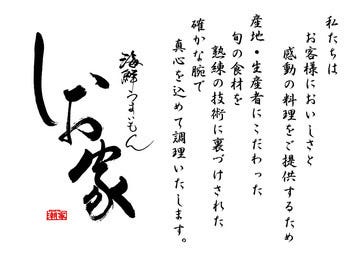 私たちは
お客様においしさと
感動の料理をご提供するため
産地・生産者にこだわった
旬の食材を
熟練の技術に裏づけされた
確かな腕で
真心を込めて調理いたします。
海鮮うまいもん
しお家